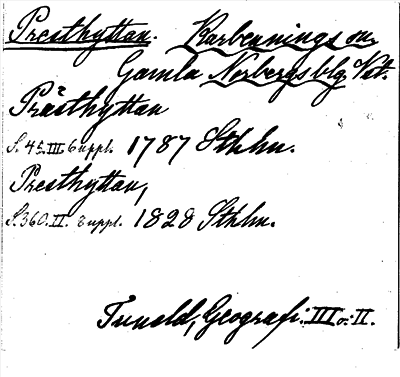 Presthyttan. Karbennings sn
Gamla Norbergs blg Vst.
Prästhyttan
S. 45. III 6 uppl. 1787 Sthlm.
Presthyttan,
S. 360. II. 8 uppl. 1828 Sthlm.
Tuneld, Geografi. III o. II.